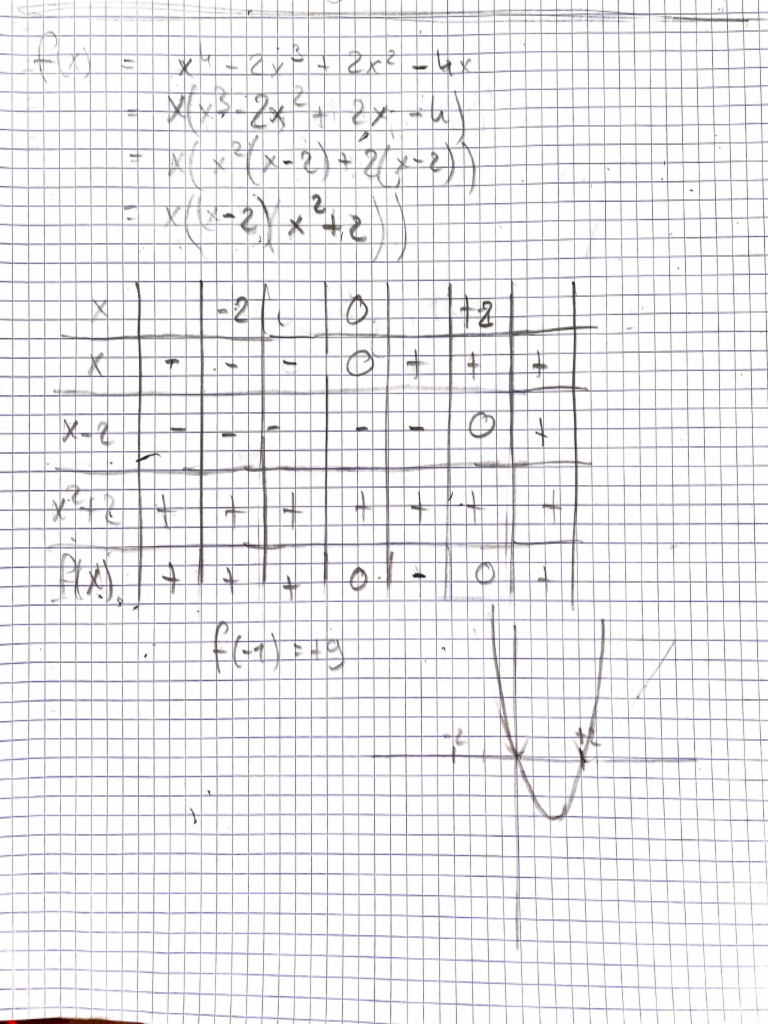 f(x) = x⁴ - 2x³ + 2x² - 4x
= x(x³ - 2x² + 2x - 4)
= x(x²(x-2) + 2(x-2))
= x((x-2)(x²+2))
x -2 0 +2
x - - - 0 + + +
x-2 - - - - - 0 +
x²+2 + + + + + + +
f(x) + + + 0 - 0 +
f(-1) = +9
-2 +2